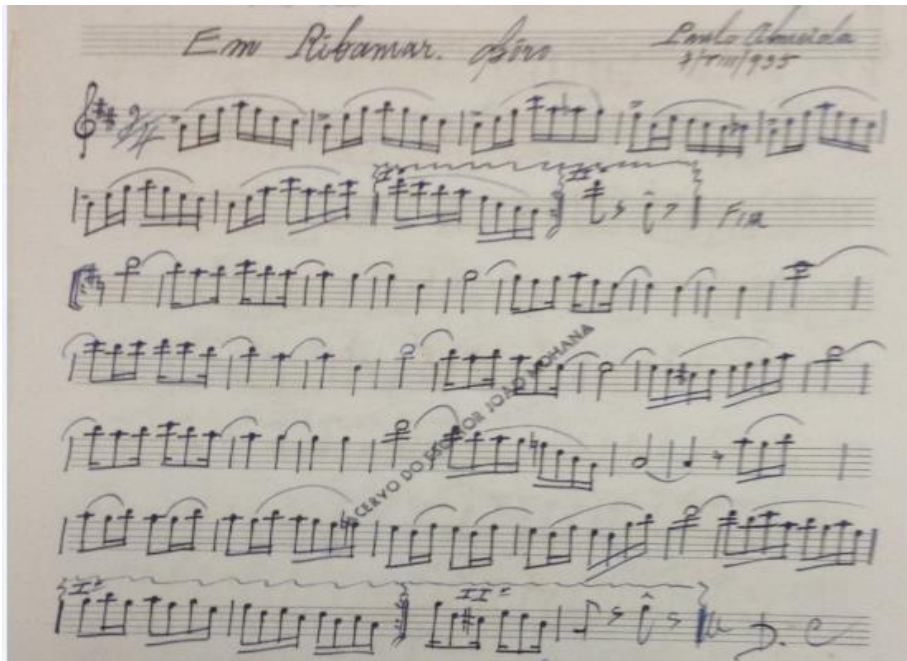 Em Ribamar. Chôro Paulo Almeida
3/VIII/935
2/4
Iª IIª
Fim
ACERVO DO ESCRITOR JOÃO MOHANA
Iª IIª
D. C